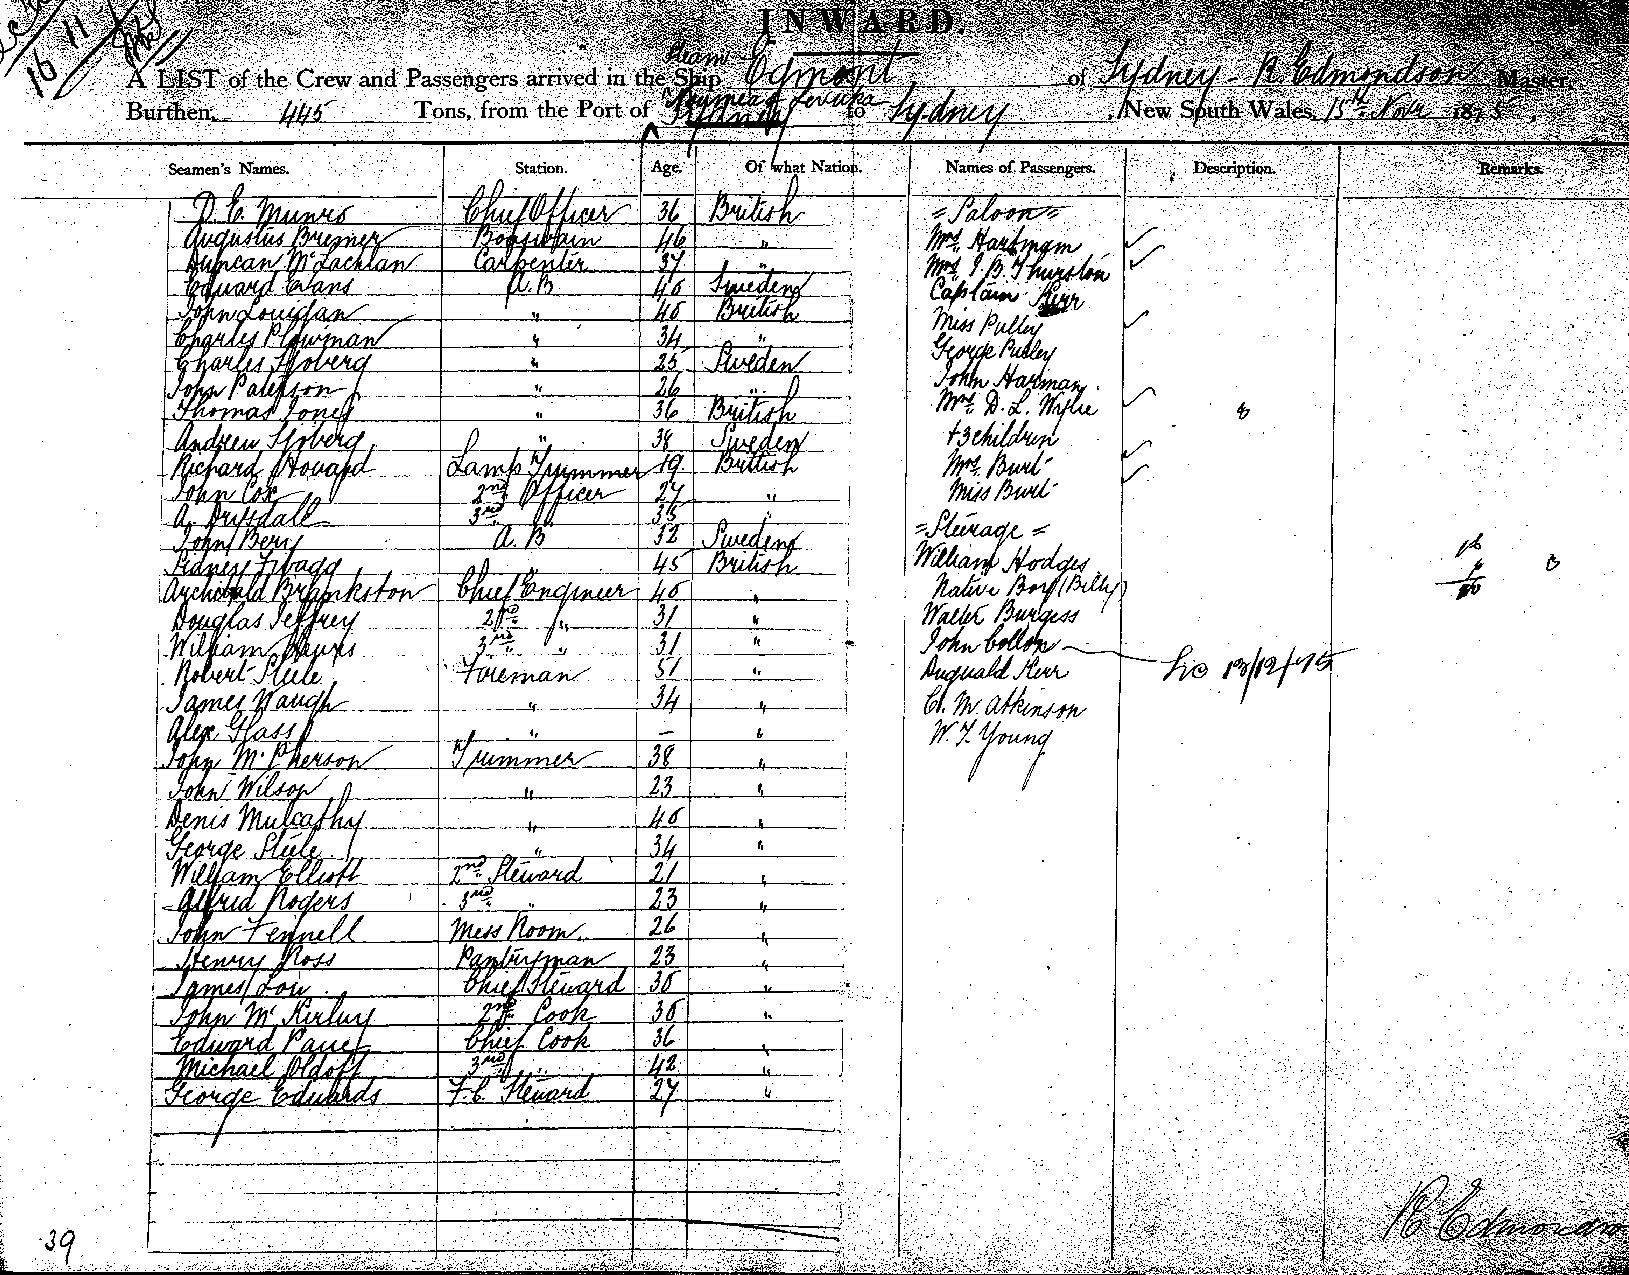 16 11
INWARD.
A LIST of the Crew and Passengers arrived in the Steam Ship Egmont of Sydney - R. Edmondson Master,
Burthen, 445 Tons, from the Port of Levuka to Sydney, New South Wales, 15th Novr 1875.
Seamen's Names. Station. Age. Of what Nation. Names of Passengers. Description. Remarks.
D. E. Munro Chief Officer 36 British
Augustus Bremer Boatswain 46 "
Duncan McLachlan Carpenter 37 "
Edward Evans A.B 40 Sweden
John Louidan " 40 British
Charles Plowman " 34 "
Charles Sjoberg " 25 Sweden
John Paterson " 26 "
Thomas Jones " 36 British
Andrew Sjoberg " 38 Sweden
Richard Howard Lamp Trimmer 19 British
John Cox 2nd Officer 27 "
A. Drysdall 3rd " 35 "
John Berg A.B 32 Sweden
Sidney Twagg " 45 British
Archibald Brankston Chief Engineer 40 "
Douglas Jeffrey 2nd " 31 "
William 3rd " 31 "
Robert Steele Foreman 51 "
James Waugh " 34 "
Alex Glass " — "
John McPherson Trimmer 38 "
John Wilson " 23 "
Denis Mulcathy " 40 "
George Steele " 34 "
William Elliott 2nd Steward 21 "
Alfred Rogers 3rd " 23 "
John Fennell Mess Room 26 "
Henry Ross Pantryman 23 "
James Low Chief Steward 30 "
John McKirley 2nd Cook 30 "
Edward Chief Cook 36 "
Michael Oldoft 3rd " 42 "
George Edwards F.C. Steward 27 "
"Saloon"
Mrs. Hartman
Mrs. J B Thurston
Captain Kerr
Miss Pulley
George Pulley
John Harman.
Mrs. D. L. Wylie
+3 children
Mrs. Burt
Miss Burt
=Steerage=
William Hodges
Native Boy (Billy)
Walter Burgess
John Cotton
Duguald Kerr
C. M. Atkinson
W. F. Young
13/12/75
39
R Edmondson